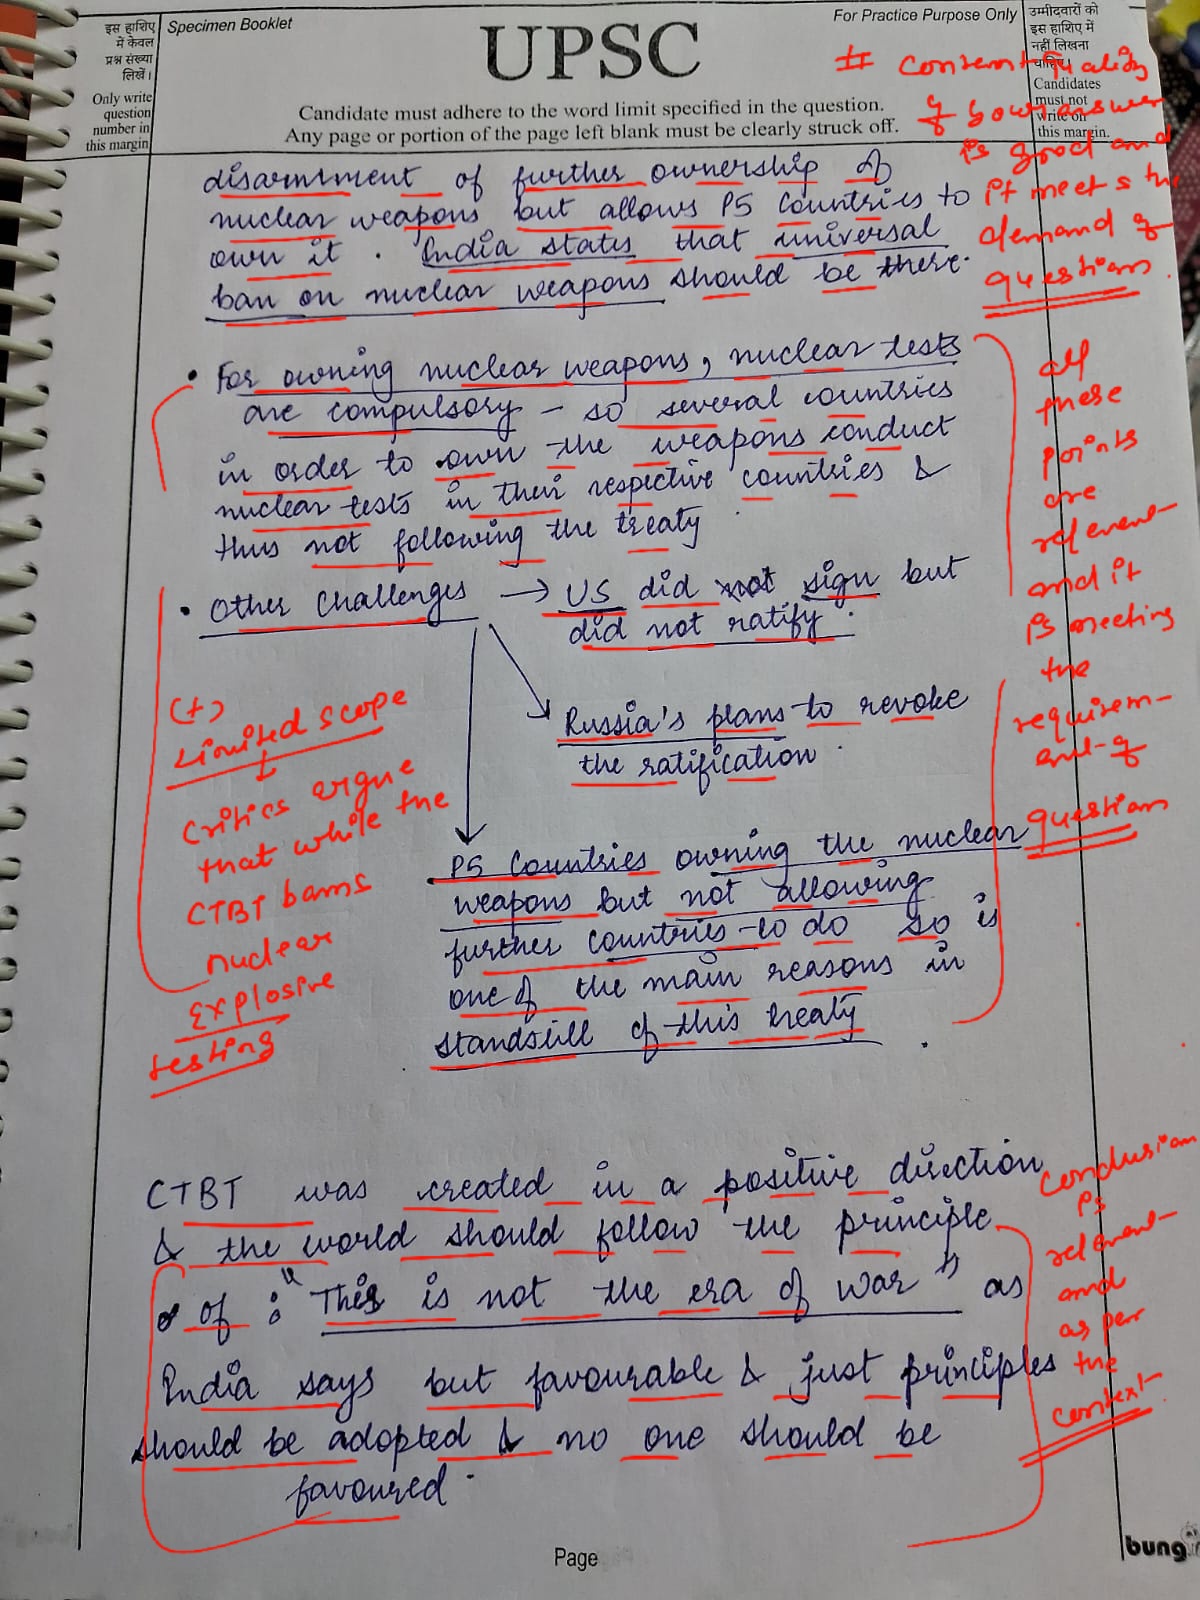 इस हाशिए
में केवल
प्रश्न संख्या
लिखें।
Only write
question
number in
this margin
Specimen Booklet
UPSC
For Practice Purpose Only
उम्मीदवारों को
इस हाशिए में
नहीं लिखना
चाहिए।
Candidates
must not
write on
this margin.
Candidate must adhere to the word limit specified in the question.
Any page or portion of the page left blank must be clearly struck off.
# Content quality
of your answer
is good and
it meets the
demand of
questions.
disarmtment of further ownership of
nuclear weapons but allows P5 countries to
own it. India states that universal
ban on nuclear weapons should be there.
• For owning nuclear weapons, nuclear tests
are compulsory – so several countries
in order to own the weapons conduct
nuclear tests in their respective countries &
thus not following the treaty
all
these
points
are
relevent
and it
is meeting
the
requirem-
ent of
questions
• Other challenges → US did not sign but
did not ratify.
Russia's plans to revoke
the ratification.
P5 countries owning the nuclear
weapons but not allowing
further countries to do so is
one of the main reasons in
standstill of this treaty.
(+)
Limited scope
↓
Critics argue
that while the
CTBT bans
nuclear
explosive
testing
CTBT was created in a positive direction
& the world should follow the principle
of : "This is not the era of war" as
India says but favourable & just principles
should be adopted & no one should be
favoured.
conclusion
is
relevent
and
as per
the
context
Page
bung